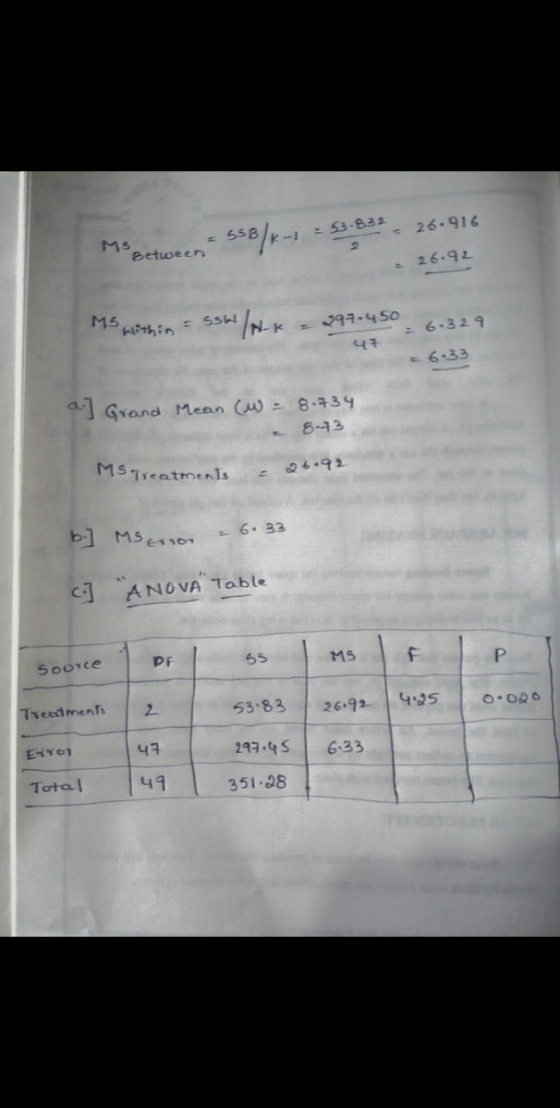 MS Between = SSB/K-1 = 53.832/2 = 26.916
= 26.92
MS Within = SSW/N-K = 297.450/47 = 6.329
= 6.33
a.] Grand Mean (μ) = 8.734
= 8.73
MS Treatments = 26.92
b.] MS Error = 6.33
c.] "ANOVA" Table
Source DF SS MS F P
Treatments 2 53.83 26.92 4.25 0.020
Error 47 297.45 6.33
Total 49 351.28